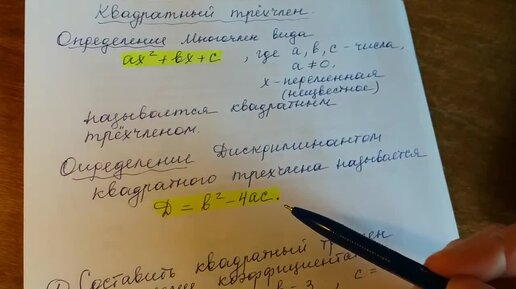 Квадратный трёхчлен.
Определение Многочлен вида
ax² + bx + c , где a, b, c - числа,
a ≠ 0,
x - переменная
(неизвестное)
называется квадратным
трёхчленом.
Определение Дискриминантом
квадратного трехчлена называется
D = b² - 4ac.
Составить квадратный
коэффициента
= 3, c =